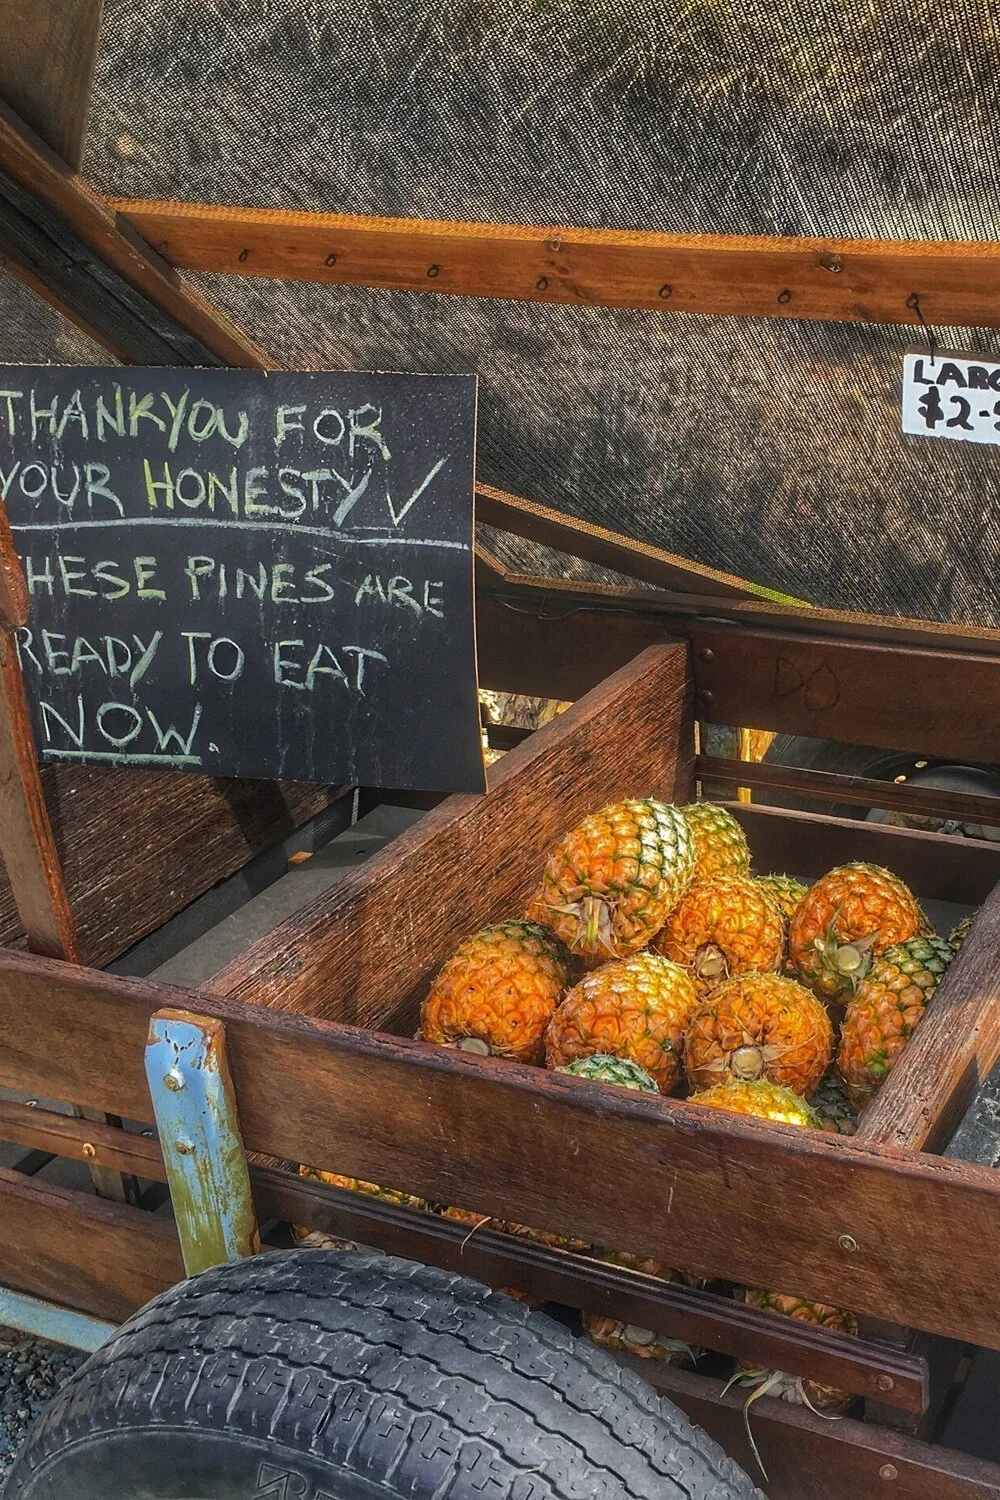 THANKYOU FOR
YOUR HONESTY ✓
HESE PINES ARE
READY TO EAT
NOW.
LARG
$2-
DO